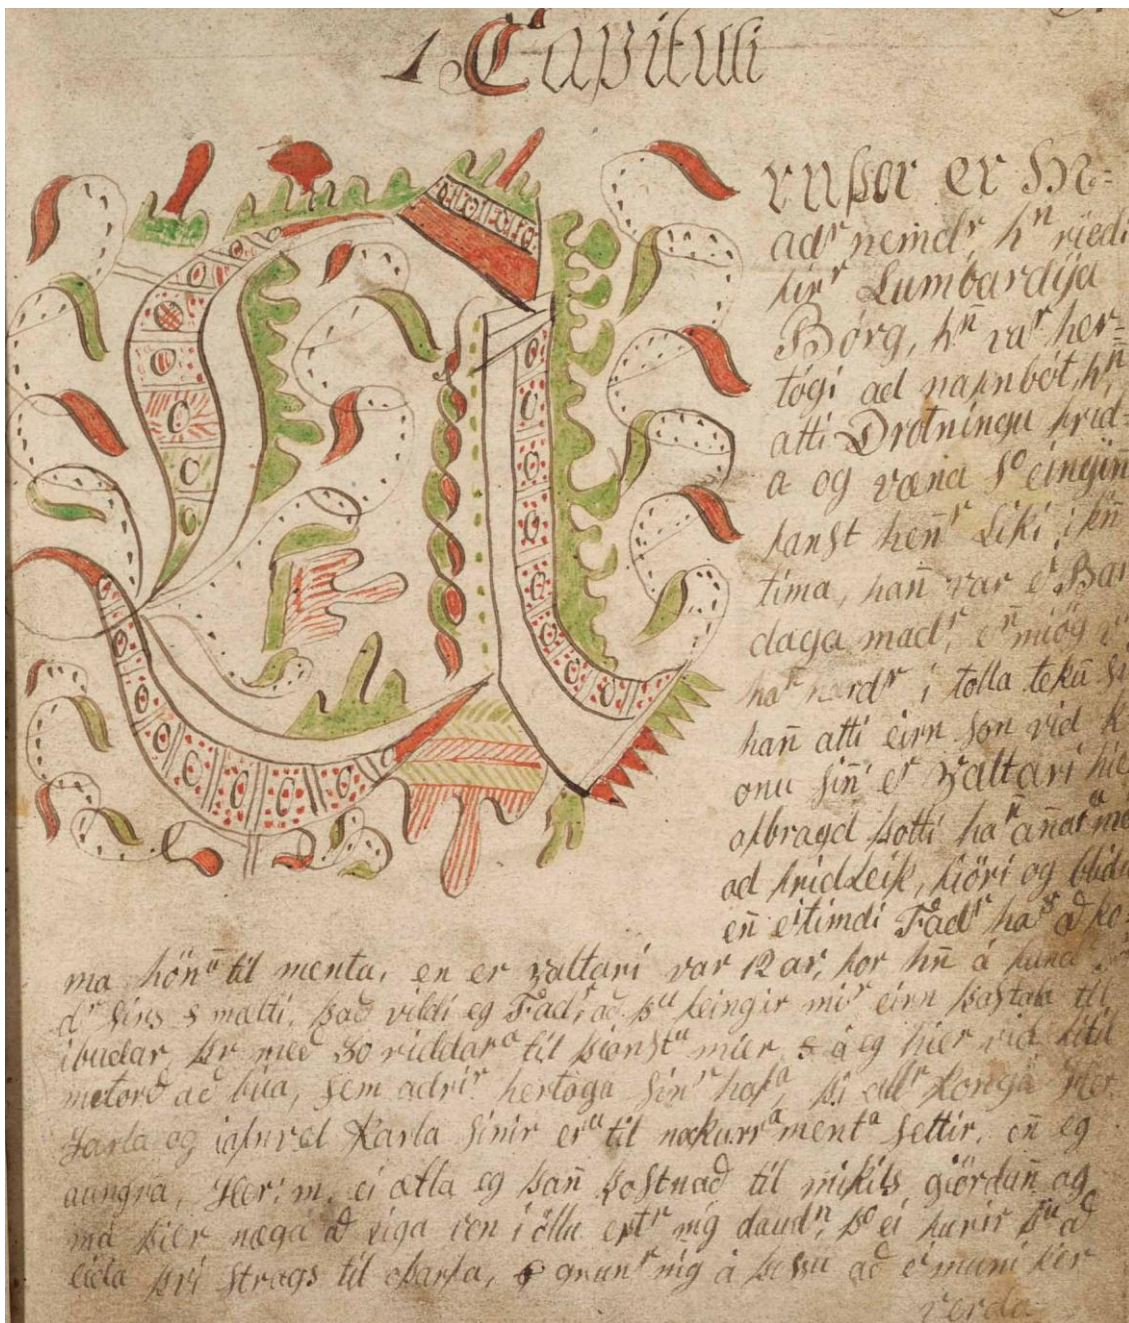 1 Capituli
rußor er M=
adr nemdr, hn riedi
firir Lumbardija
Borg, hn var her=
togi ad nafnbót, hn
atti Drotningu frid=
a og væna so eingin
fanst henr Liki i þn
tima, han var er Bar
daga madr, en miög
har i tolla teku
hañ atti eirn son vid K
onu siñi er Valtari hie
afbragd þotti han añar
ad fridLeik, fiöri og blidu
eñ ei timdi Fadr hans að ko=
ma hönu til menta, en er valtari var 12 ar, for hñ á fund
dr sins s mælti, það vildi eg Fadr, að þu feingir mir eirn kastala til
ibudar, þr með 30 riddara til þionstu mier, s á eg hier vid litil
metorð að búa, sem adrir hertoga sinir hafa, þi allr Konga Her
Jarla og iafnvel Karla sinir eru til nokurra menta settir, eñ eg
aungra, Her: m. ei ætla eg þañ kostnað til mikils giördañ og
má þier næga að eiga von i öllu eptr mig daudn, þo ei þurir þu að
eida þvi strags til oþarfa, grunr mig á þessu að ei muni þier
verda